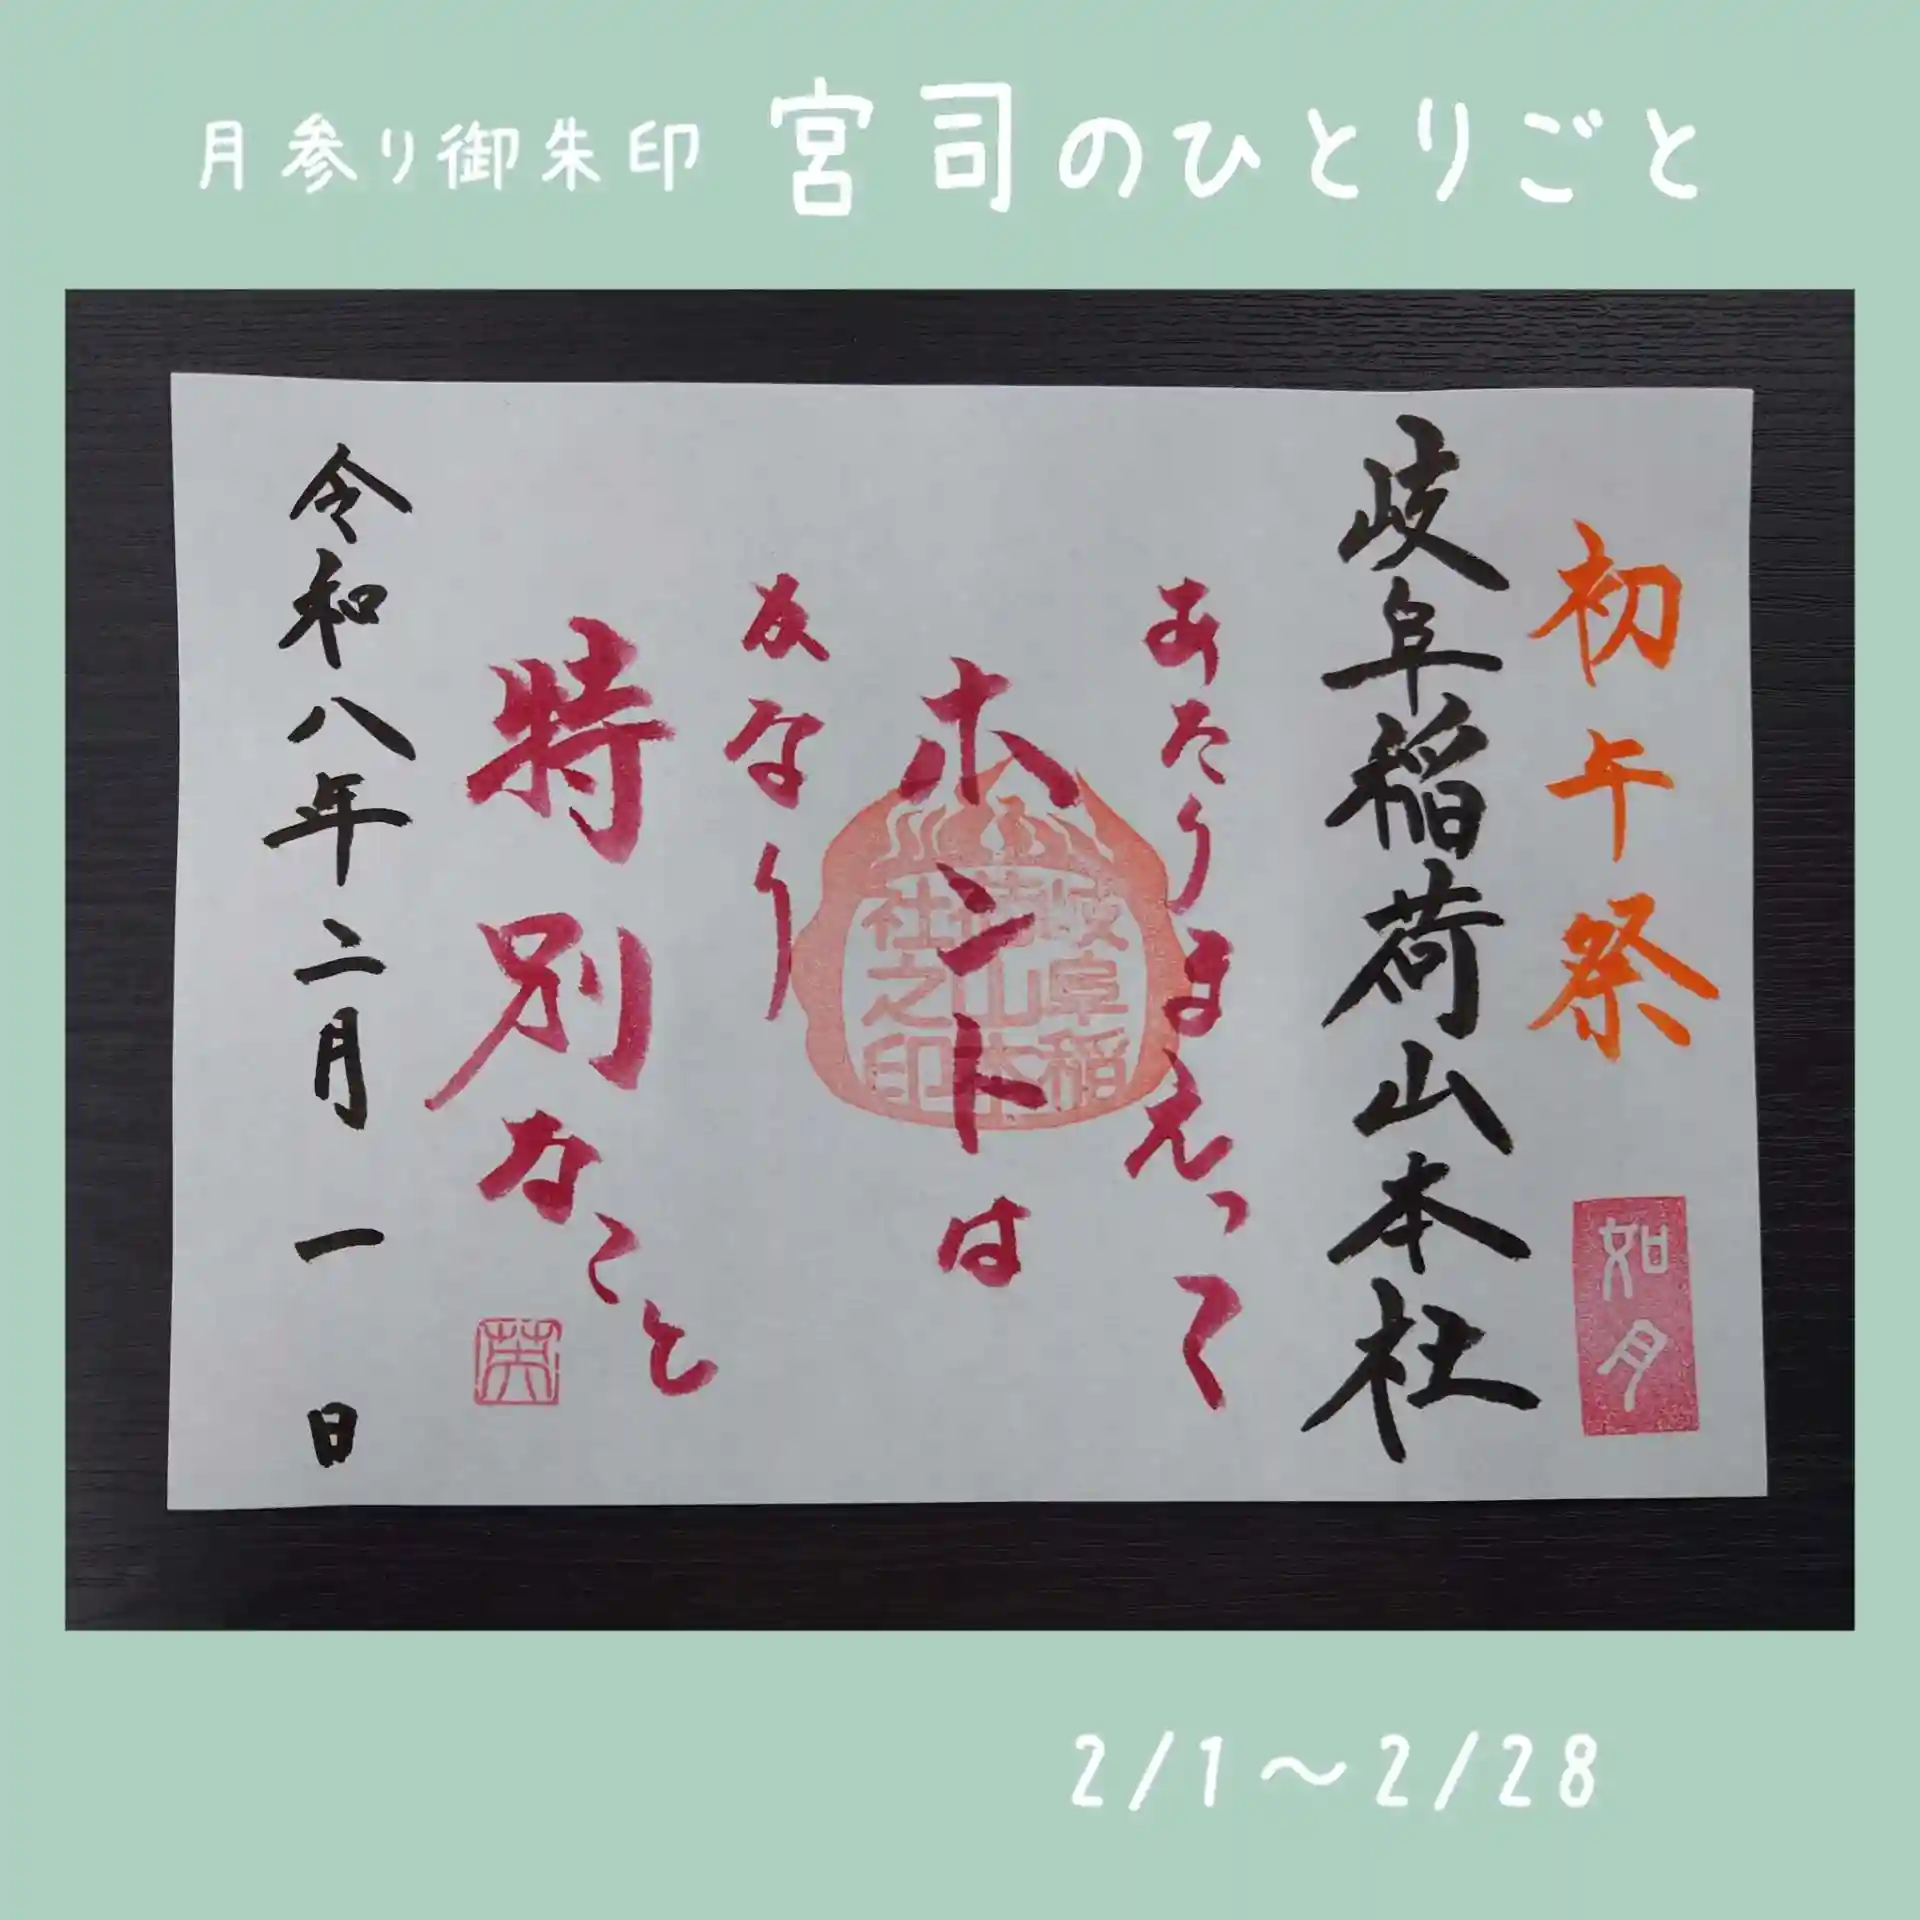 月参り御朱印 宮司のひとりごと
初午祭
如月
岐阜稲荷山本社
あたりまえって
ホントは
岐阜稲荷山本社之印
かなり
特別なこと
令和八年二月一日
2/1〜2/28